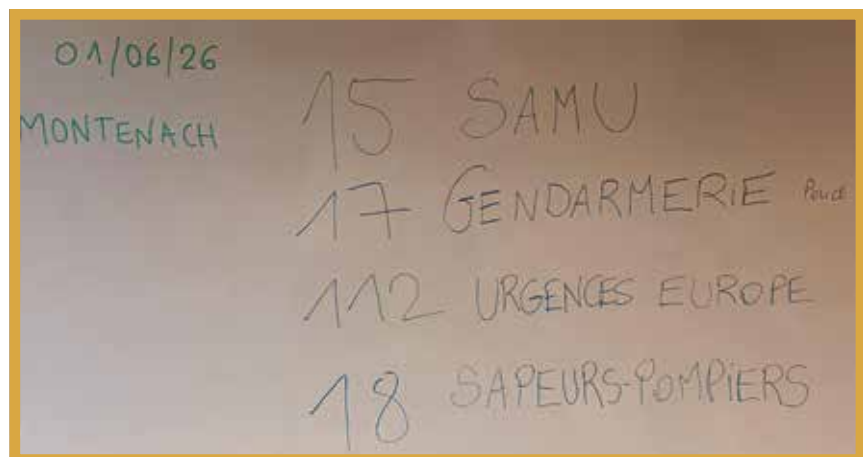 01/06/26
MONTENACH
15 SAMU
17 GENDARMERIE Police
112 URGENCES EUROPE
18 SAPEURS-POMPIERS